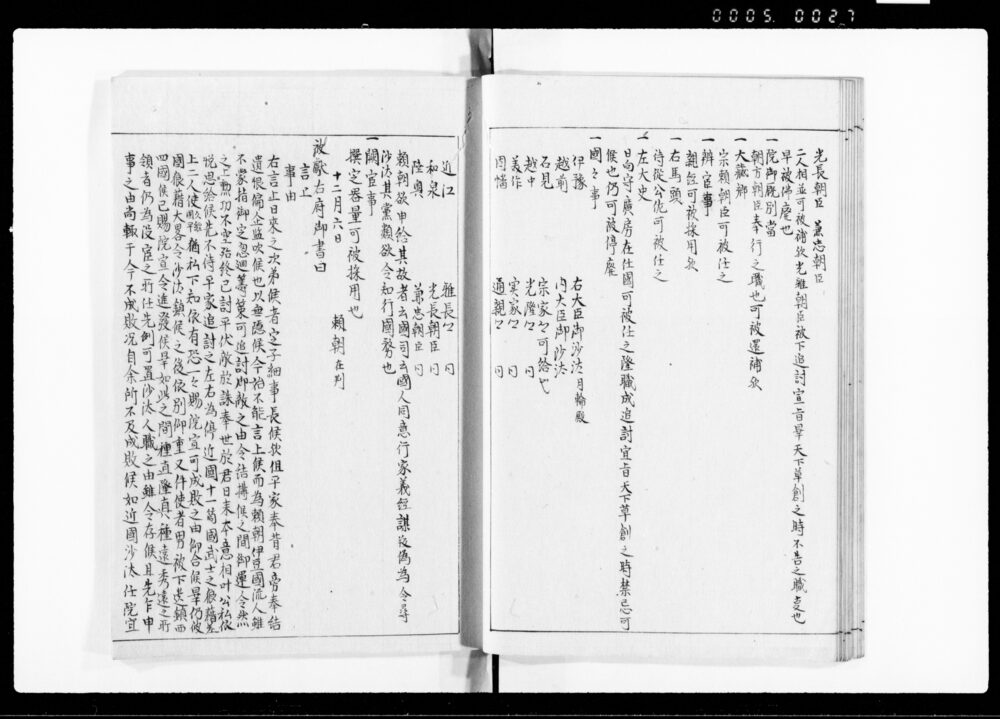 0005.0027
光長朝臣 兼忠朝臣
二人相並可被補欤光雅朝臣被下追討宣旨畢天下草創之時不吉之職事也
早被停廃也
一院御厩別當
朝方朝臣奉行之職也可被還補欤
一大蔵卿
宗頼朝臣可被仕之
一辨官事
親経可被採用欤
一右馬頭
侍従公佐可被仕之
一左大史
日向守廣房在任國可被仕之隆職成追討宣旨天下草創之時禁忌可
候也仍可被停廃
一國々事
伊豫 右大臣御沙汰月輪殿
越前 内大臣御沙汰
石見 宗家々可給也
越中 光隆々 同
美作 実家々 同
因幡 通親々 同
近江 雅長々 同
和泉 光長朝臣 同
陸奥 兼忠朝臣 同
頼朝欲申給其故者云國司云國人同意行家義経謀反偽為令尋
沙汰其黨類欲令知行國務也
一闕官事
撰定器量可被採用也
十二月六日 頼朝在判
被献右府御書曰
言上
事由
右言上日来之次弟候者定子細事長候欤但平家奉背君旁奉結
遺恨偏企濫吹候也以無隠候今始不能言上候而為頼朝伊豆國流人雖
不蒙指御定忽廻籌策可追討御敵之由令結搆候之間御運令然
之上勲功不空殆終已討平伏敵於誅奉世於君日来本意相叶公私依
悦思給候先不待平家追討之左右為停近國十一箇國武士之狼藉差
上二人使久経國平猶私下知依有恐一々賜院宣可成敗之由仰合候畢仍彼
國狼藉大畧令沙汰鎮候之後依別仰重又件使者男被下遣鎮西
四國候已賜院宣令進發候畢如此之間種直隆直種遠秀遠之所
領者仍為没官之所任先例可置沙汰人職之由雖令存候且先乍申
事之由尚輙于今不成敗況自余所不及成敗候如近國沙汰任院宣